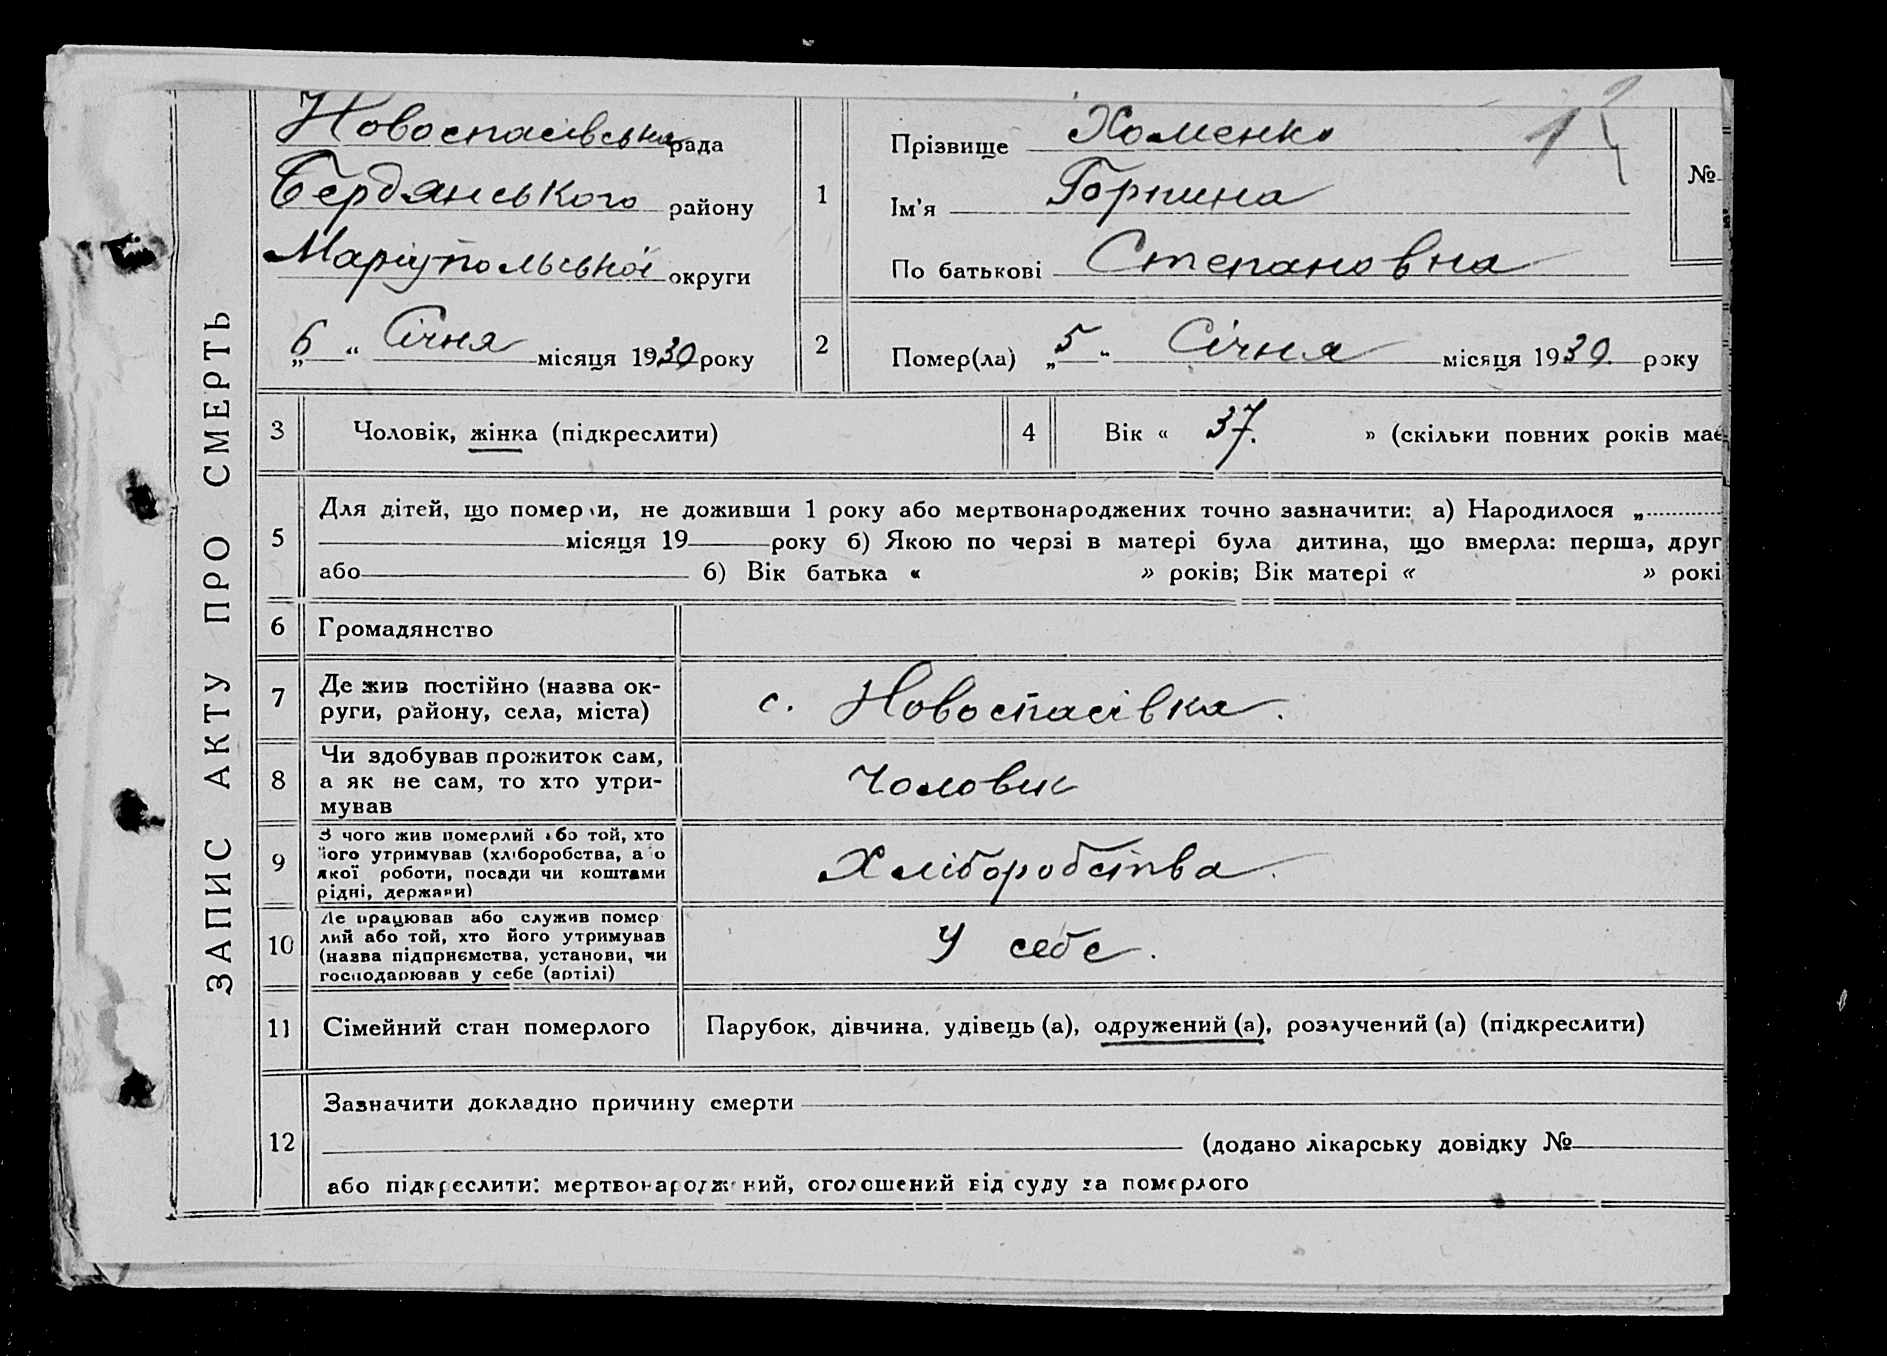 ЗАПИС АКТУ ПРО СМЕРТЬ
Новоспасівська рада
Бердянського району
Маріупольської округи
„6“ Січня місяця 1930 року
1
Прізвище Хоменко
Ім'я Горпина
По батькові Степановна
№
2
Помер(ла) „5“ Січня місяця 1930 року
3
Чоловік, жінка (підкреслити)
4
Вік « 37. » (скільки повних років має
5
Для дітей, що померли, не доживши 1 року або мертвонароджених точно зазначити: а) Народилося „
місяця 19 року б) Якою по черзі в матері була дитина, що вмерла: перша, друг
або б) Вік батька « » років; Вік матері « » рокі
6
Громадянство
7
Де жив постійно (назва ок-
руги, району, села, міста)
с. Новоспасівка.
8
Чи здобував прожиток сам,
а як не сам, то хто утри-
мував
Чоловик
9
З чого жив померлий або той, хто
його утримував (хліборобства, а о
якої роботи, посади чи коштами
рідні, держави)
Хліборобства.
10
Де працював або служив помер
лий або той, хто його утримував
(назва підприємства, установи, чи
господарював у себе (артілі)
У себе.
11
Сімейний стан померлого
Парубок, дівчина, удівець (а), одружений (а), розлучений (а) (підкреслити)
12
Зазначити докладно причину смерти
(додано лікарську довідку №
або підкреслити: мертвонароджений, оголошений від суду за померлого